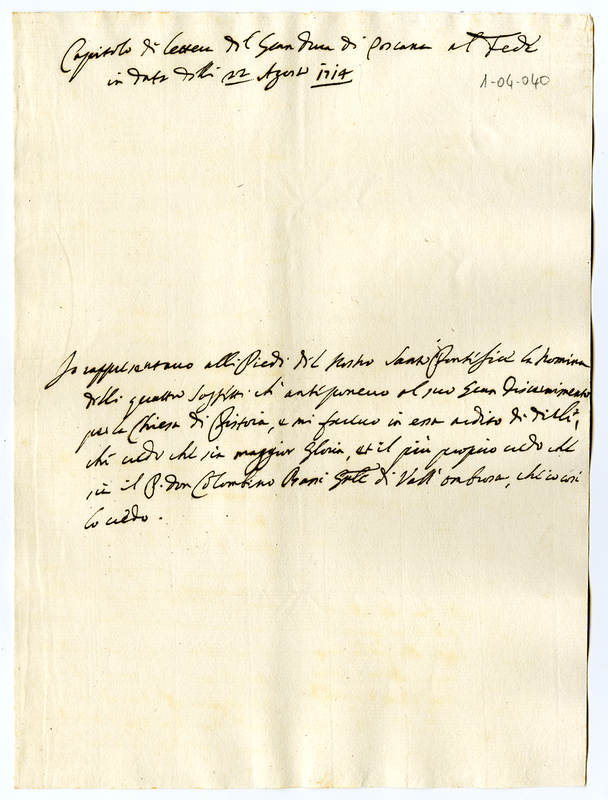 Capitolo di lettera del Gran Duca di Toscana al Fede
in data delli 22 Agosto 1714
1-04-040
Io rappresentavo alli Piedi del Nostro Santo Pontefice la Nomina
delli quattro Soggetti ch' anteponevo al suo Gran Discernimento
per la Chiesa di Pistoia, e mi facevo in essa ardito di dirli,
che credo che sia maggior Gloria, et il più proprio credo che
sia il P. Don Colombino Bassi Gnle di Vall' ombrosa, che io così
lo credo.